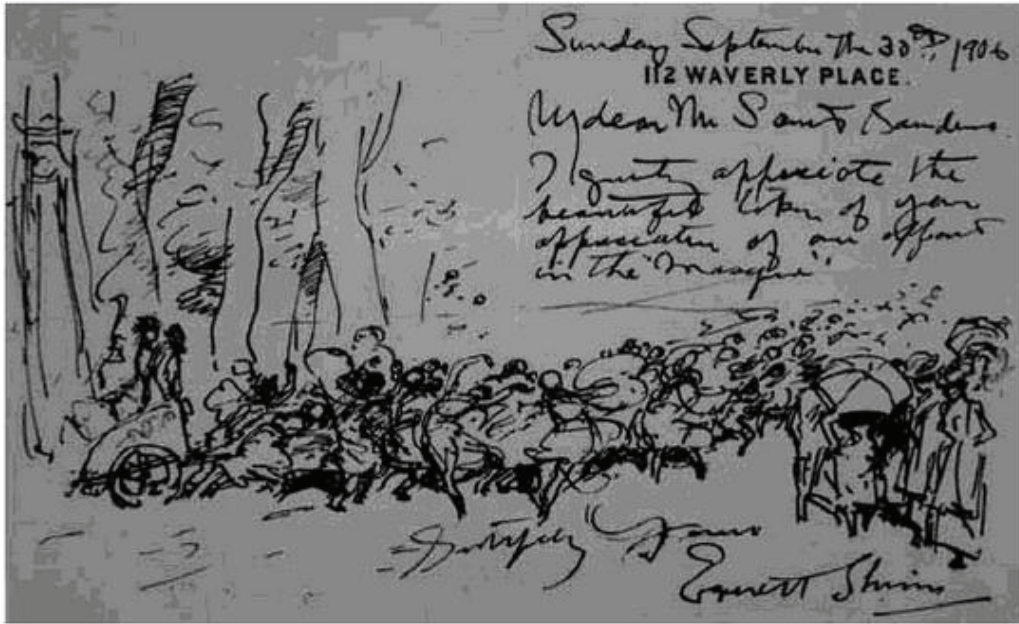 Sunday September the 30th, 1906
112 WAVERLY PLACE.
My dear Mr Saint Gaudens
I greatly appreciate the
beautiful token of your
appreciation of our effort
in the "Masque"
Yours
Everett Shinn